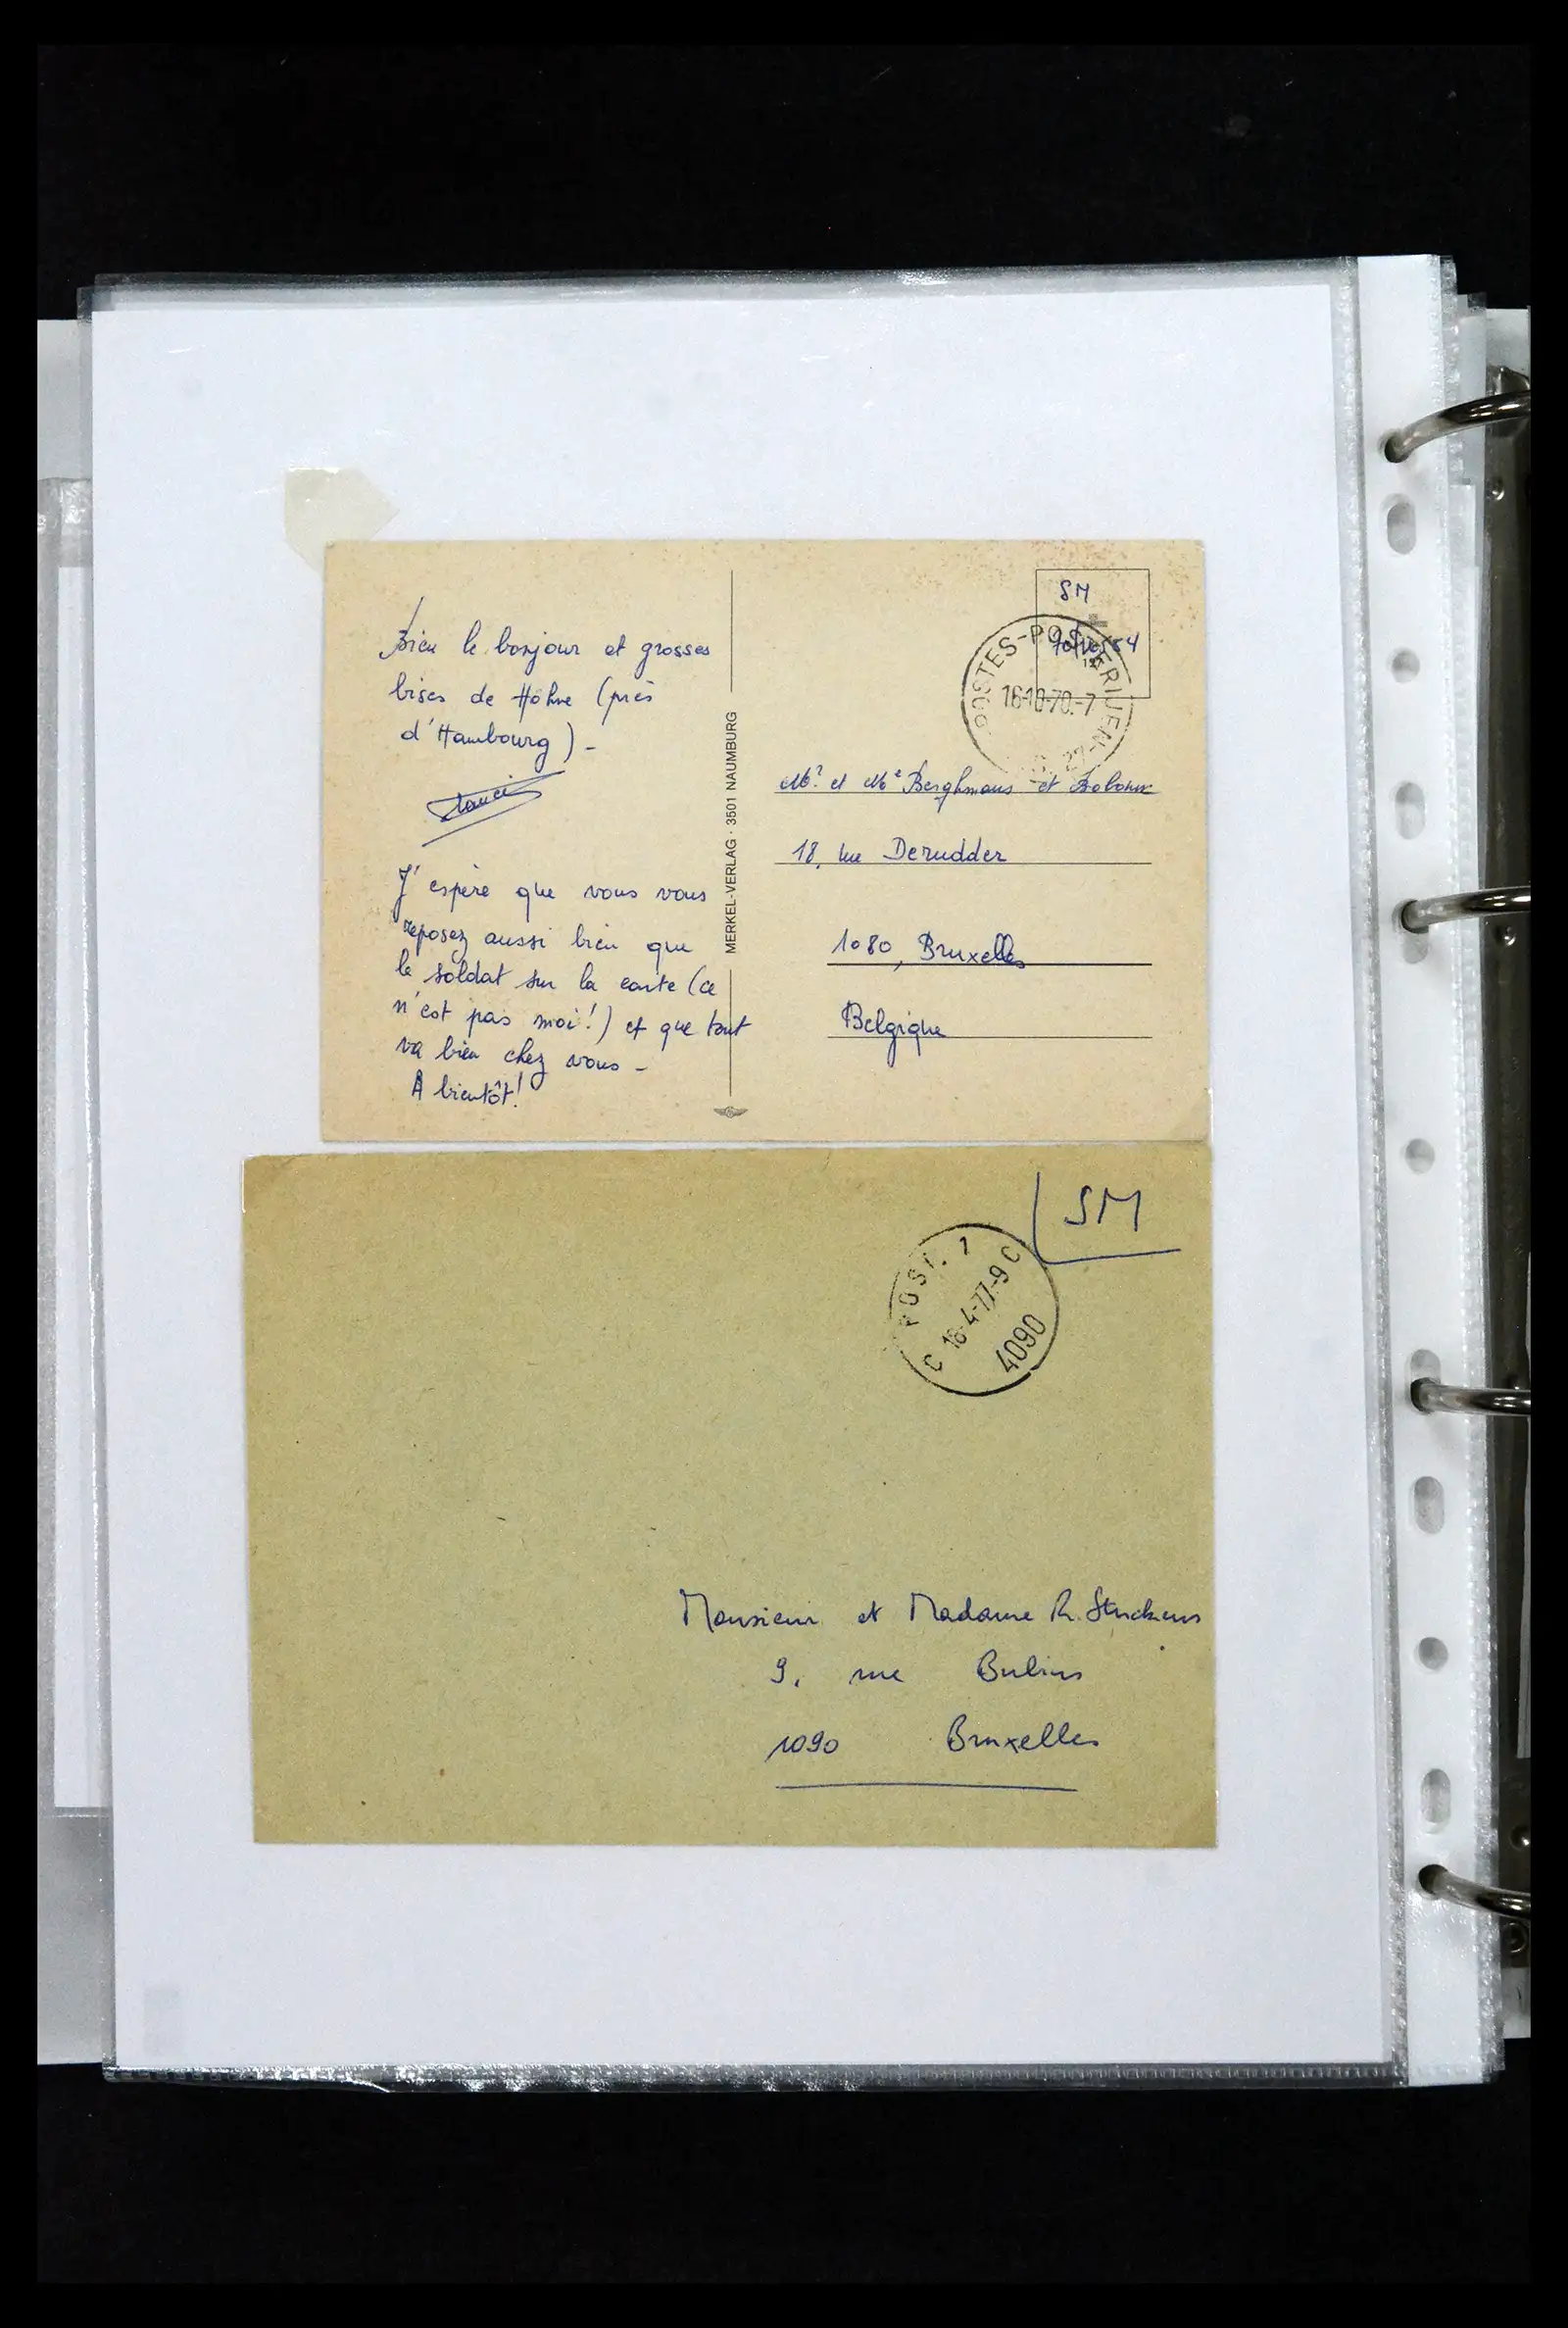 Bien le bonjour et grosses
bises de Höhne (près
d'Hambourg) -
J'espère que vous vous
reposez aussi bien que
le soldat sur la carte (ce
n'est pas moi!) et que tout
va bien chez vous -
A bientôt!
MERKEL-VERLAG · 3501 NAUMBURG
SM
POSTES-POSTERIJEN
16-10-70.-7
Mr et Me Berghmans et
18, rue Derudder
1080, Bruxelles
Belgique
SM
POST. 1
C 18-4-77-9 C
4090
Monsieur et Madame R. Struckens
9, rue
1090 Bruxelles